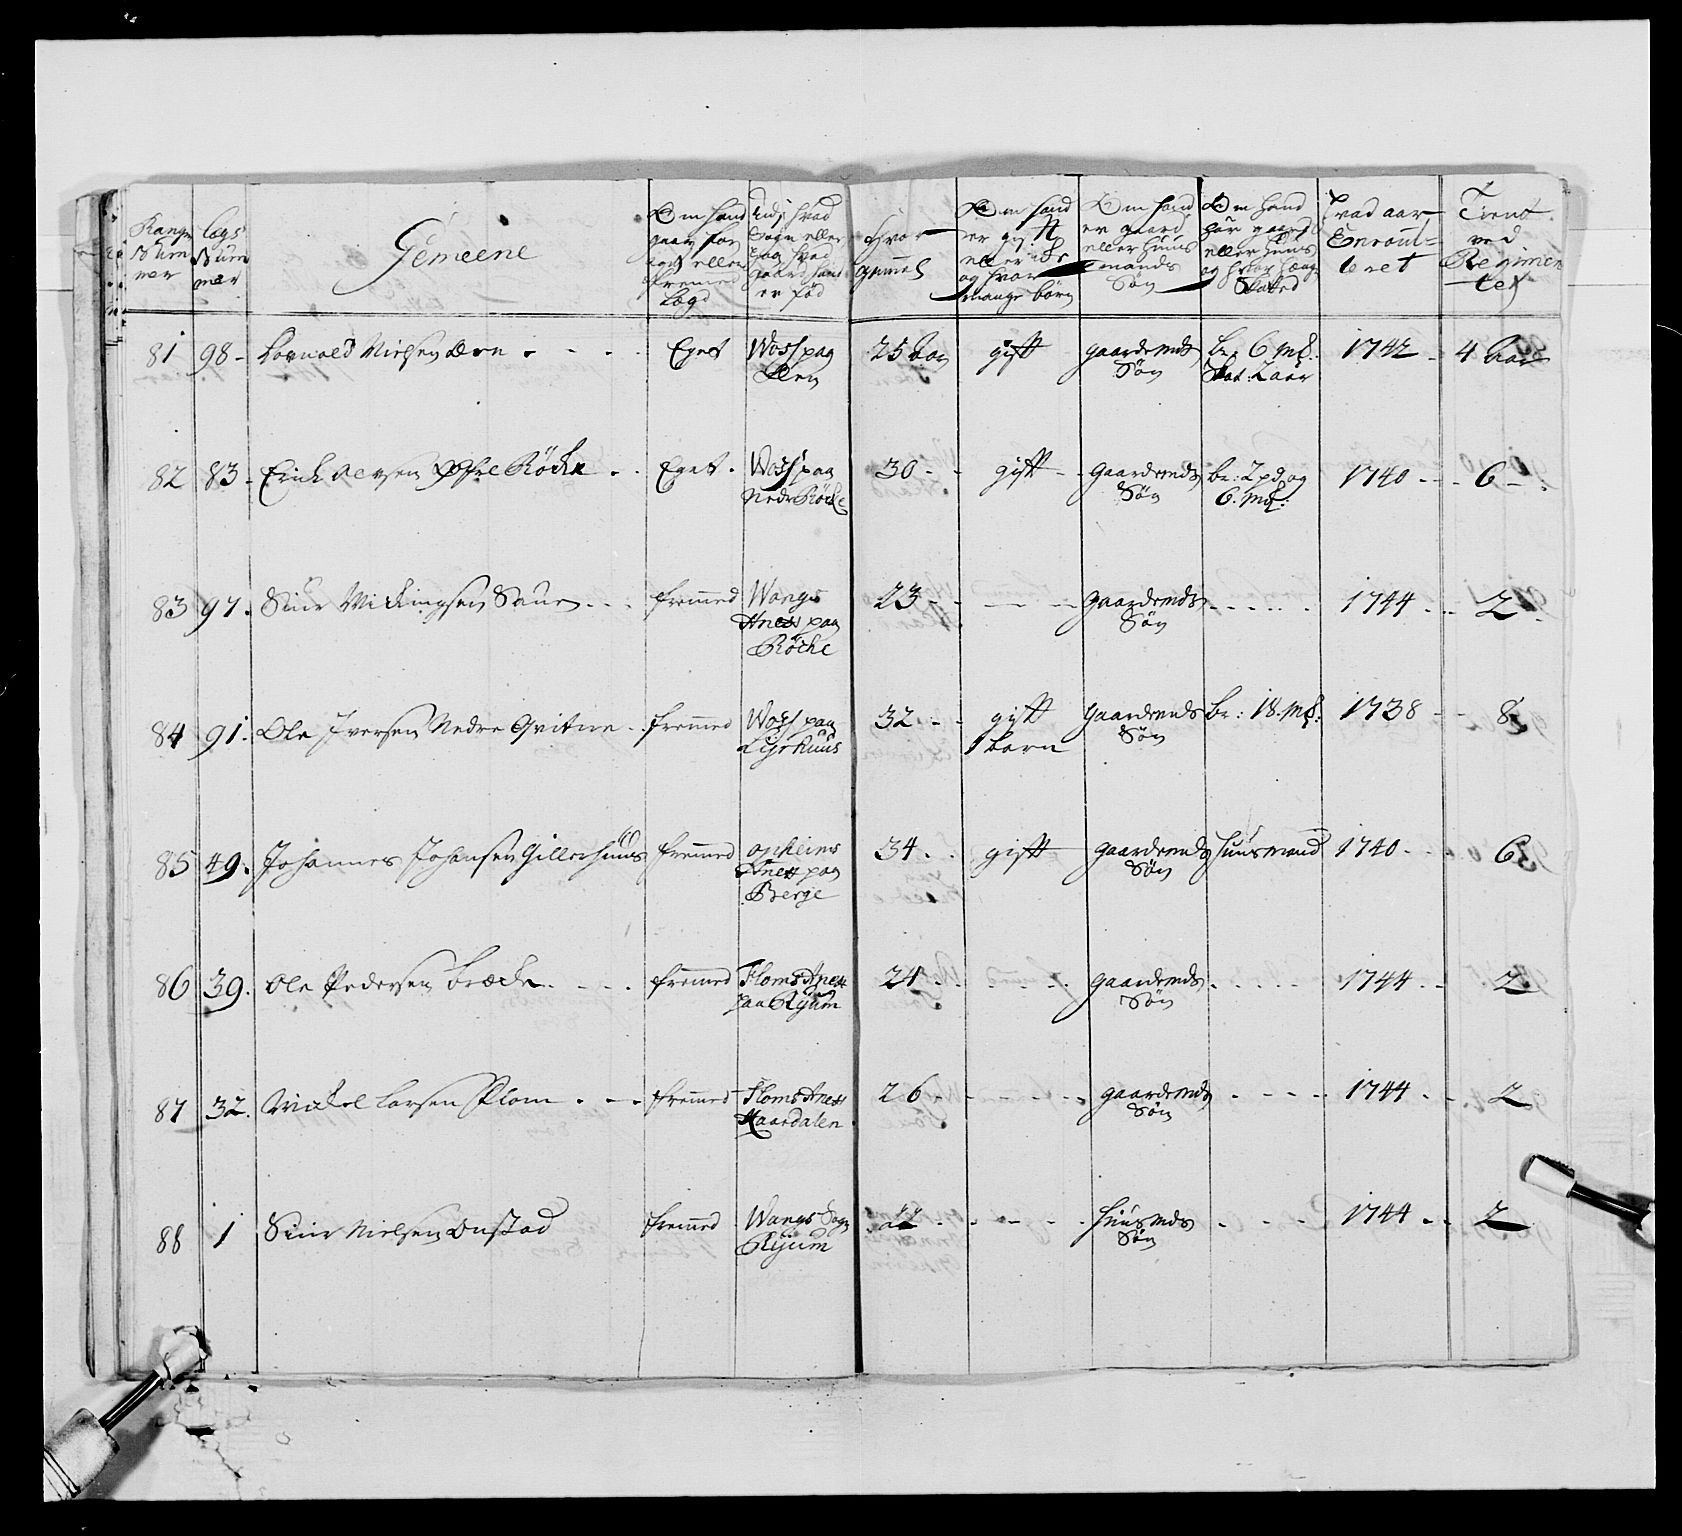 Rangs Num mer
Lægs Num mer
Gemeene
Om hand gaar for eget eller fremed Lægd
Udj hvad Sogn eller paa hvad gaard hand er fød
Hvor gammel
Om hand er gift eller ej og hvor mange børn
Om hand er gaard eller huus mands Søn
Om hand har gaard eller huus
Hvad aar Enroul= leret
Tient ved Regimen tet
81 98 - Nielsen Eget Woss paa 25 aar gift gaardmds Søn br: 6 Mk. 1742 - 4 aar
82 83 - Erich Røche Eget Woss paa Nedre Røche 30 - gift gaardmds Søn br: 2 pd og 6 Mk: 1740 - 6 -
83 97. Siur Vichingsen Saue fremmed Wangs Anex paa Røche 23 - gaardmds Søn 1744 2
84 91. Ole Iversen Nedre Qvitne fremmed Woss paa Lijrhuus 32 - gift 1 barn gaardmds Søn br: 18 Mk: 1738 8
85 49. Johannes Johansen Gillerhuus fremmed opheims Anex paa Berge 34. gift gaardmds Søn huusmand 1740 6
86 39. Ole Pedersen Bræche fremmed Floms Anex paa Rijum 24. gaardmds Søn 1744 2
87 32. Michel Larsen Flom fremmed Floms Anex Haardalen 26 gaardmds Søn 1744 2
88 1 Siur Nielsen Onstad fremmed Wangs Sogn Rijum 22 huusmds Søn 1744 2